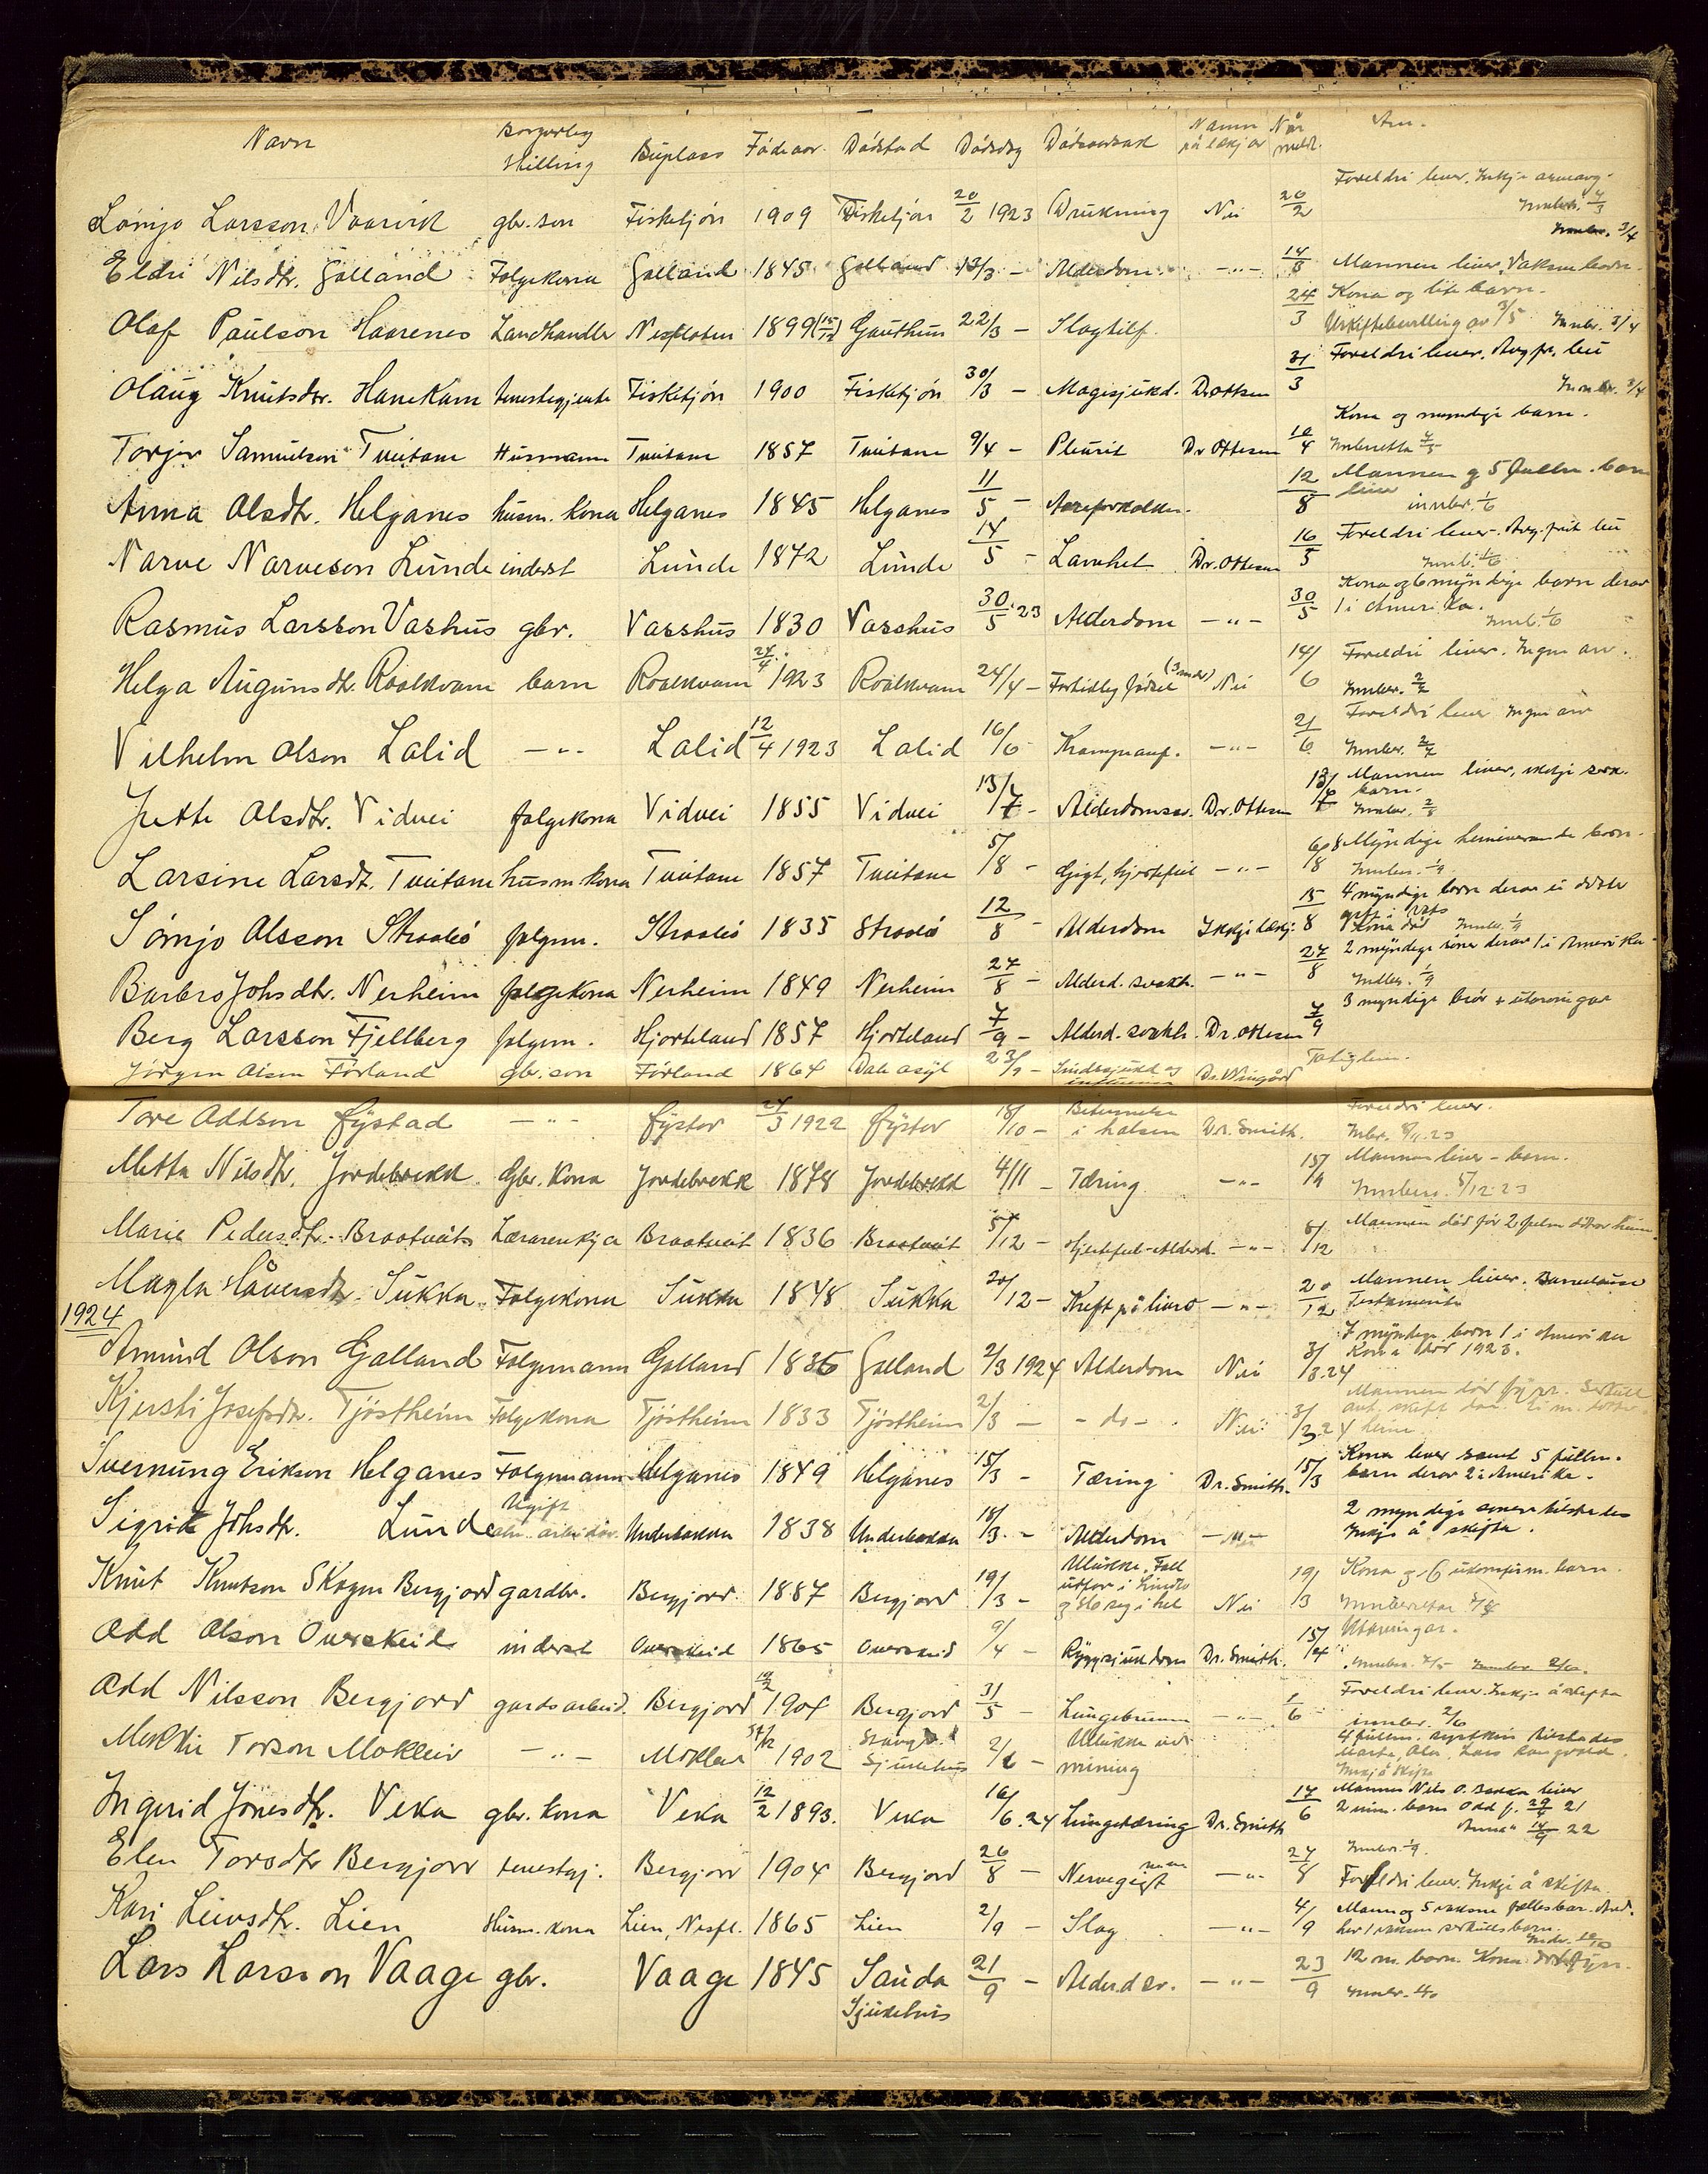 Navn Borgerleg Stilling Buplass Fødeaar Dødstad Dødsdag Dødsaarsak Namn på lækjar Når meldt Am.
Sømjo Larsson Vaarvik gbr. son Fisketjón 1909 Fisketjón 20/2 1923 Drukning Nei 20/2 Foreldri lever.
Eldri Nilsdtr. Galland Folgekona Galland 1845 Galland 13/3 - Alderdom - " - 14/3 Mannen lever. Vaksne born.
Olaf Paulson Haarenes Landhandler Nesflaten 1899 (15/12) Gauthun 22/3 - Slagtilf. 24/3 Kona og lite barn. Uskiftebevilling av 3/5 Innbr. 3/4
Olaug Knutsdtr. Hanekam tenestegjenta Fisketjón 1900 Fisketjón 30/3 - Magesjukd. Dr Ottesen 31/3 Foreldri lever. Innbr. 3/4
Torger Samuelson Tveitane Husmann Tveitane 1857 Tveitane 9/4 - Pleurit Dr Ottesen 10/4 Kona og myndige barn. Innberetta
Anna Olsdtr. Helganes husm. kona Helganes 1845 Helganes 11/5 - 12/8 Mannen og 5 fullm. barn lever innber. 1/6
Narve Narveson Lunde inderst Lunde 1872 Lunde 14/5 - Lamhet Dr. Ottesen 16/5 Foreldri lever. Innb. 1/6
Rasmus Larsson Vashus gbr. Vasshus 1830 Vasshus 30/5 23 Alderdom - " - 30/5 Kona og 6 myndige barn derav 1 i Amerika. Innb. 1/6
Helga Augunsdtr. Roalkvam barn Roalkvam 24/4 1923 Roalkvam 24/4 - Fortidleg fødsel (3 mdr) Nei 14/6 Foreldri lever. Ingen arv. Innber. 2/7
Vilhelm Olson Lalid - " - Lalid 12/4 1923 Lalid 16/6 Krampeanf. - " - 21/6 Foreldri lever Ingen arv Innber. 2/7
Jette Olsdtr. Vidvei folgekona Vidvei 1855 Vidvei 13/7 - Alderdomssv. Dr. Ottesen 13/7 Mannen lever, ikkje serk. barn. Innber. 2/8
Larsine Larsdt. Tveitane husm. kona Tveitane 1857 Tveitane 5/8 - Gigt, hjertefeil - " - 6/8 Myndige heimeverande born. Innber. 1/9
Sømjo Olsson Straaleó folgem. Straaleó 1835 Straaleó 12/8 - Alderdom Ikkje lækj. 15/8 4 myndige born derav ei dotter gift i Kona død Innber. 1/9
Barbro Johsdtr. Nerheim folgekona Nerheim 1849 Nerheim 27/8 - Alderd. svakh. - " - 27/8 2 myndige søner derav 1 i Amerika. Indber. 1/9
Berg Larsson Fjellberg folgem. Hjorteland 1857 Hjorteland 7/9 - Alderd. svakh. Dr. Ottesen 7/9 3 myndige brør + utarvingar
Jørgen Olson Førland gbr. son Førland 1864 Dale asyl 23/9 - Sindssjukd og influensa Dr. Wingård Fatiglem.
Tore Oddson Øystad - " - Øystad 24/3 1922 Øystad 18/10 - Betennelse i halsen Dr. Smith. Foreldri lever. Inbr. 8/11 23
Metta Nilsdtr. Jordebrekk Gbr. kona Jordebrekk 1878 Jordebrekk 4/11 - Tæring - " - 15/11 Mannen lever - barn. Innber. 5/12 23
Marie Pedersdtr. Braatveit Lærarenkja Braatveit 1836 Braatveit 5/12 - Hjertefeil-Alderd. - " - 8/12 Mannen død før 2 fulm døtrar heime.
Magla Håversdtr. Sukka Folgekona Sukka 1848 Sukka 20/12 - Kreft på livet - " - 20/12 Mannen lever. Barnlause Testamente
1924
Amund Olson Galland Folgemann Galland 1836 Galland 2/3 1924 Alderdom Nei 3/3.24 7 myndige born 1 i Amerika Kona død 1923.
Kjersti Josefsdtr. Tjøstheim Folgekona Tjøstheim 1833 Tjøstheim 2/3 - - do - Nei 3/3.24 Mannen død før.
Sveinung Erikson Helganes Folgemann Helganes 1849 Helganes 15/3 - Tæring Dr. Smith. 15/3 Kona lever samt 5 fullm. barn derav 2 i Amerika.
Sigrid Johsdtr. Lunde Ugift Underbakken 1838 Underbakken 18/3 - Alderdom - " - 2 myndige Inkje å skifta.
Knut Knutson Skogen Bergjord gardbr. Bergjord 1887 Bergjord 19/3 - Ulukke. Fall utfor i Suldo og slo seg i hel Nei 19/3 Kona og 6 ukonfirm. barn. Innberetta
Odd Olson Overskeid inderst Overskeid 1865 Overskeid 9/4 - Ryggsjukdom Dr. Smith. 15/4 Utarvingar.
Odd Nilsson Bergjord gardsarbeid. Bergjord 19/2 1904 Bergjord 31/5 - Lungebrann - " - 1/6 Foreldri lever. Inkje å skifta innber. 2/6
Torson Mokleiv - " - Mokleiv 1902 Stavg. Sjukehus 2/6 - Ulukke ved mining 4 fullm. sysken Inkje å skifta
Ingerid Jonesdtr. Veka gbr. kona Veka 12/2 1893. Veka 16/6.24 Lungetæring Dr. Smith 17/6 Mannen Nils O. Bakka lever 2 um. barn Odd f. 29/4 21 Anna " 14/9 22
Elen Torsdtr Bergjord tenestgj. Bergjord 1904 Bergjord 26/8 - Nervegigt - " - 27/8 Innber. 1/9. Foreldri lever. Inkje å skifta
Kari Leivsdtr. Lien Husm. kona Lien, Nesfl. 1865 Lien 2/9 - Slag - " - 4/9 Mann og 5 vaksne fellesbarn. har 1 vaksen serkullsbarn.
Lars Larsson Vaage gbr. Vaage 1845 Sauda Sjukehus 21/9 - Alderd.sv. - " - 23/9 12 m. barn. Kona død fyrr.